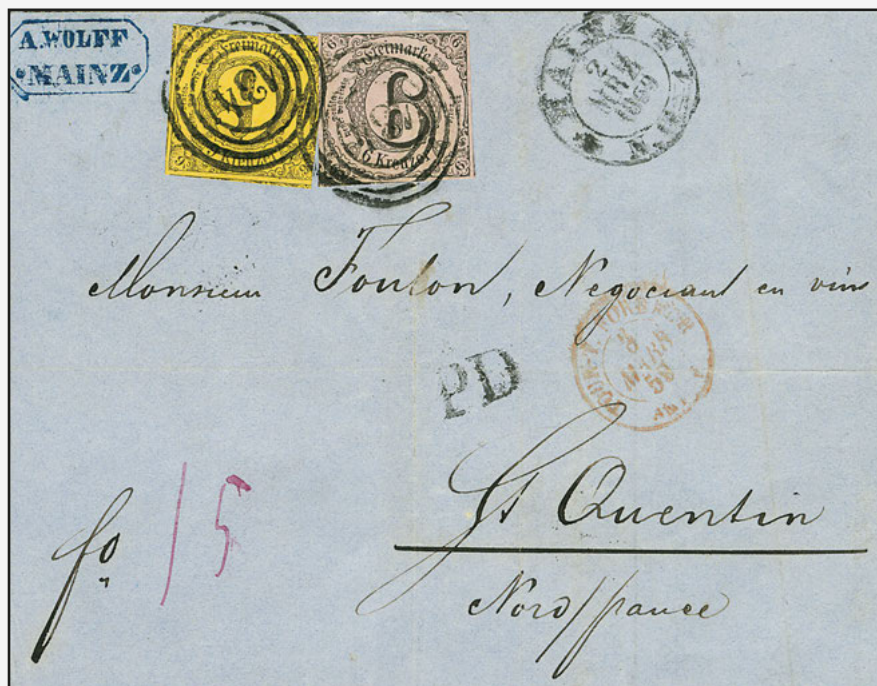 A. WOLFF
• MAINZ •
Freimarke
9 Kreuzer
Freimarke
6
6. Kreuzer
MAINZ
2
MRZ
Monsieur Foulon, Negociant en vins
TOUR-T. FORBACH
MARS
PD
fo 15
St Quentin
Nord/france